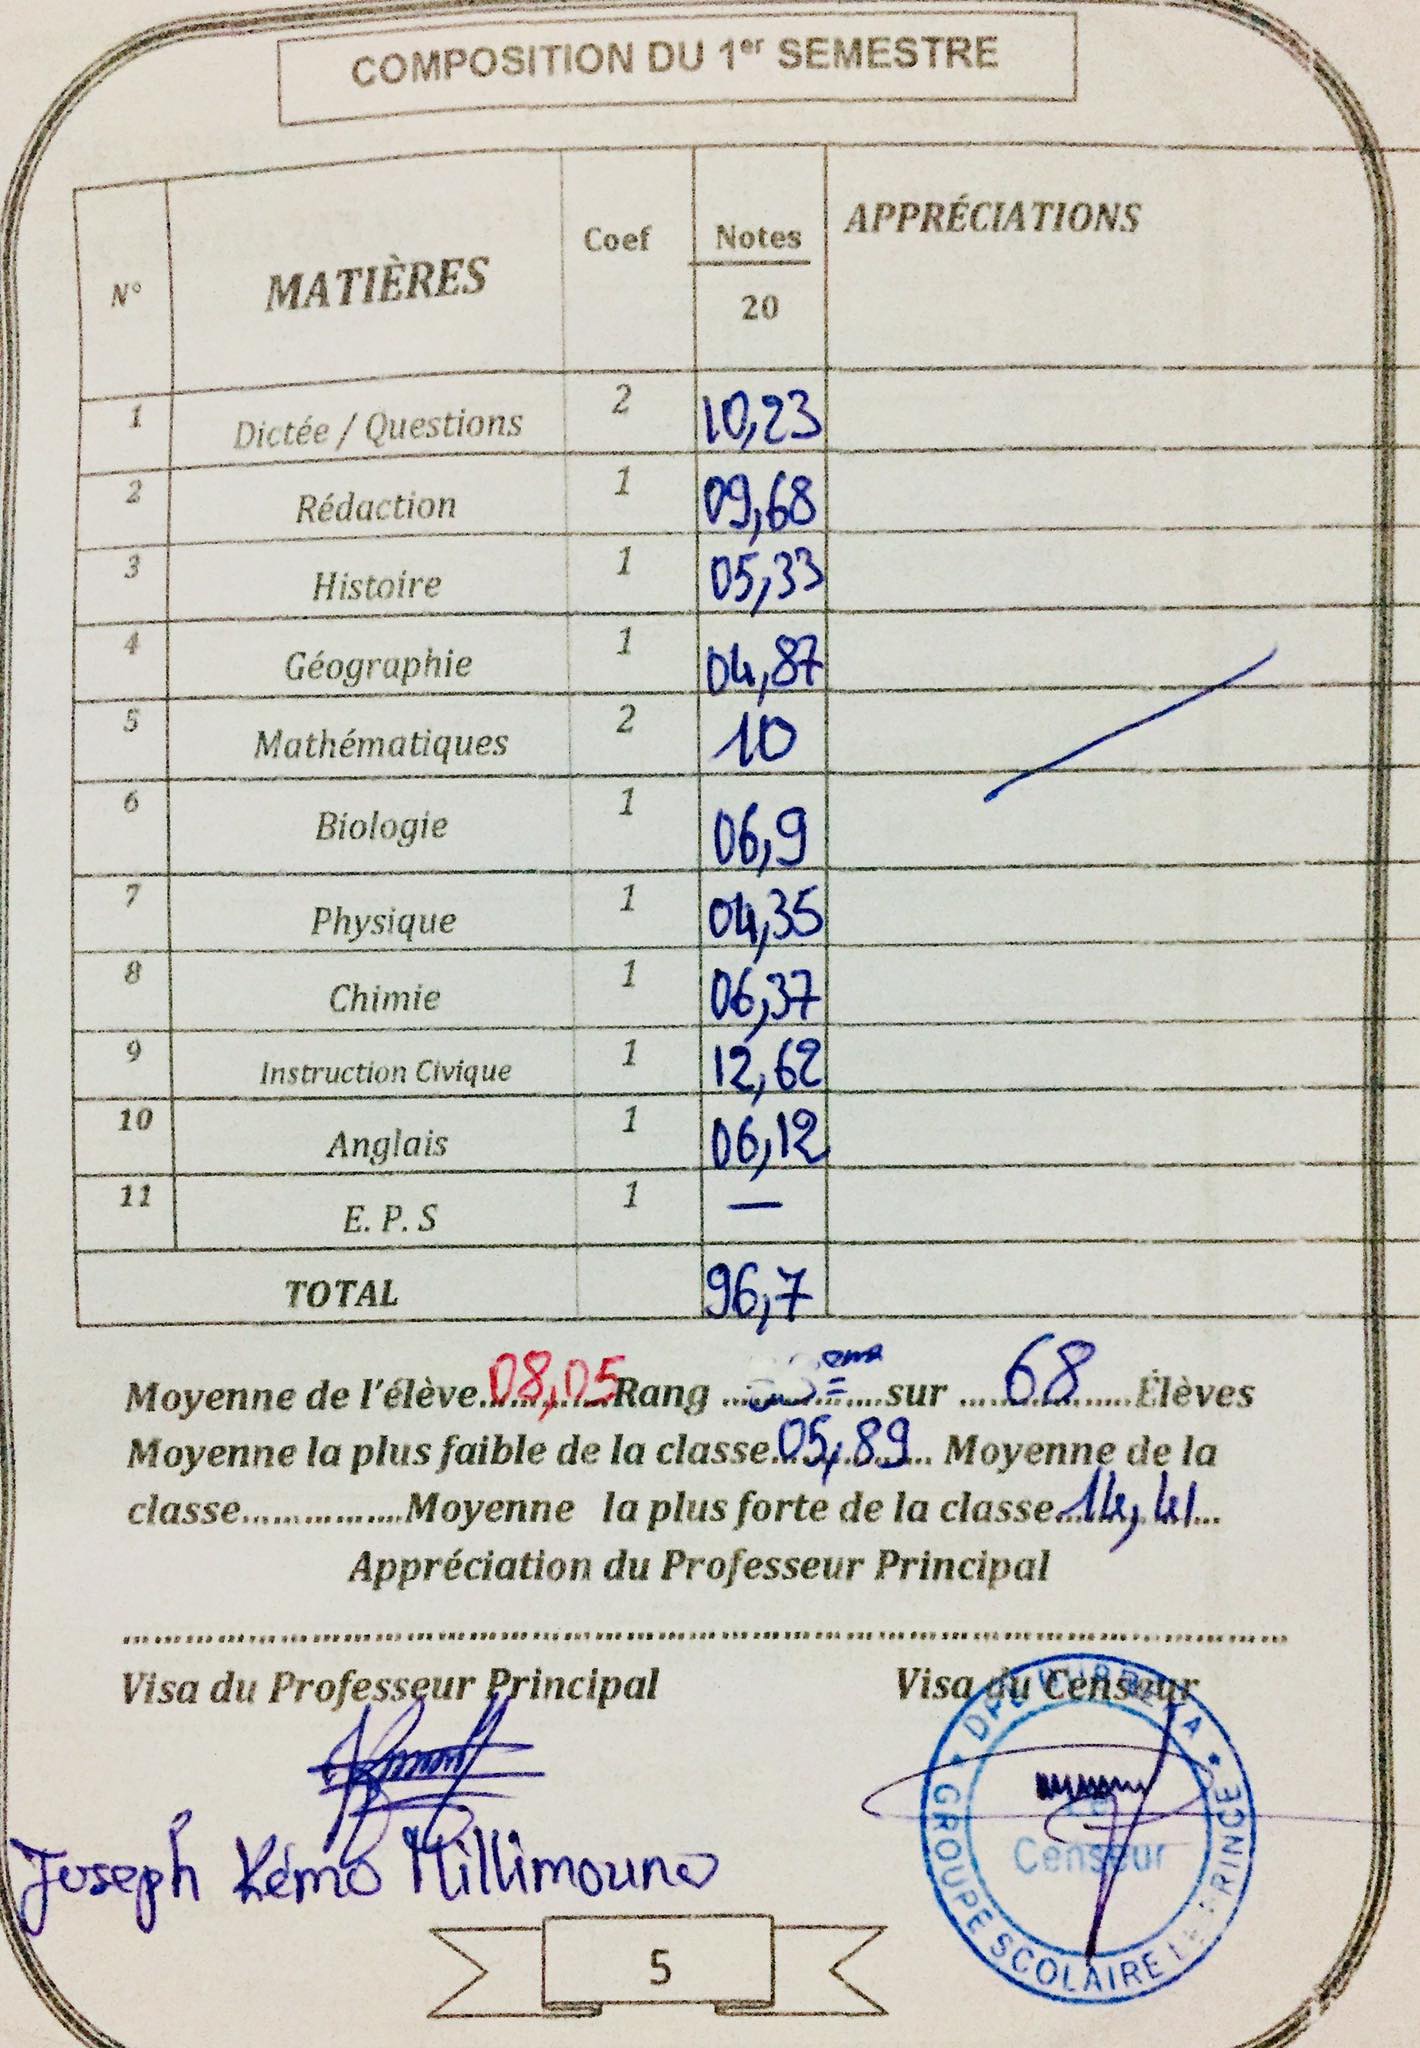 COMPOSITION DU 1er SEMESTRE
N° MATIÈRES Coef Notes 20 APPRÉCIATIONS
1 Dictée / Questions 2 10,23
2 Rédaction 1 09,68
3 Histoire 1 05,33
4 Géographie 1 04,87
5 Mathématiques 2 10
6 Biologie 1 06,9
7 Physique 1 04,35
8 Chimie 1 06,37
9 Instruction Civique 1 12,62
10 Anglais 1 06,12
11 E. P. S 1 —
TOTAL 96,7
Moyenne de l'élève 08,05 Rang ème sur 68 Élèves
Moyenne la plus faible de la classe 05,89 Moyenne de la
classe...............Moyenne la plus forte de la classe 14,41
Appréciation du Professeur Principal
Visa du Professeur Principal Visa du Censeur
Joseph Kémo Millimouno
GROUPE SCOLAIRE LE PRINCE
Le
Censeur
5